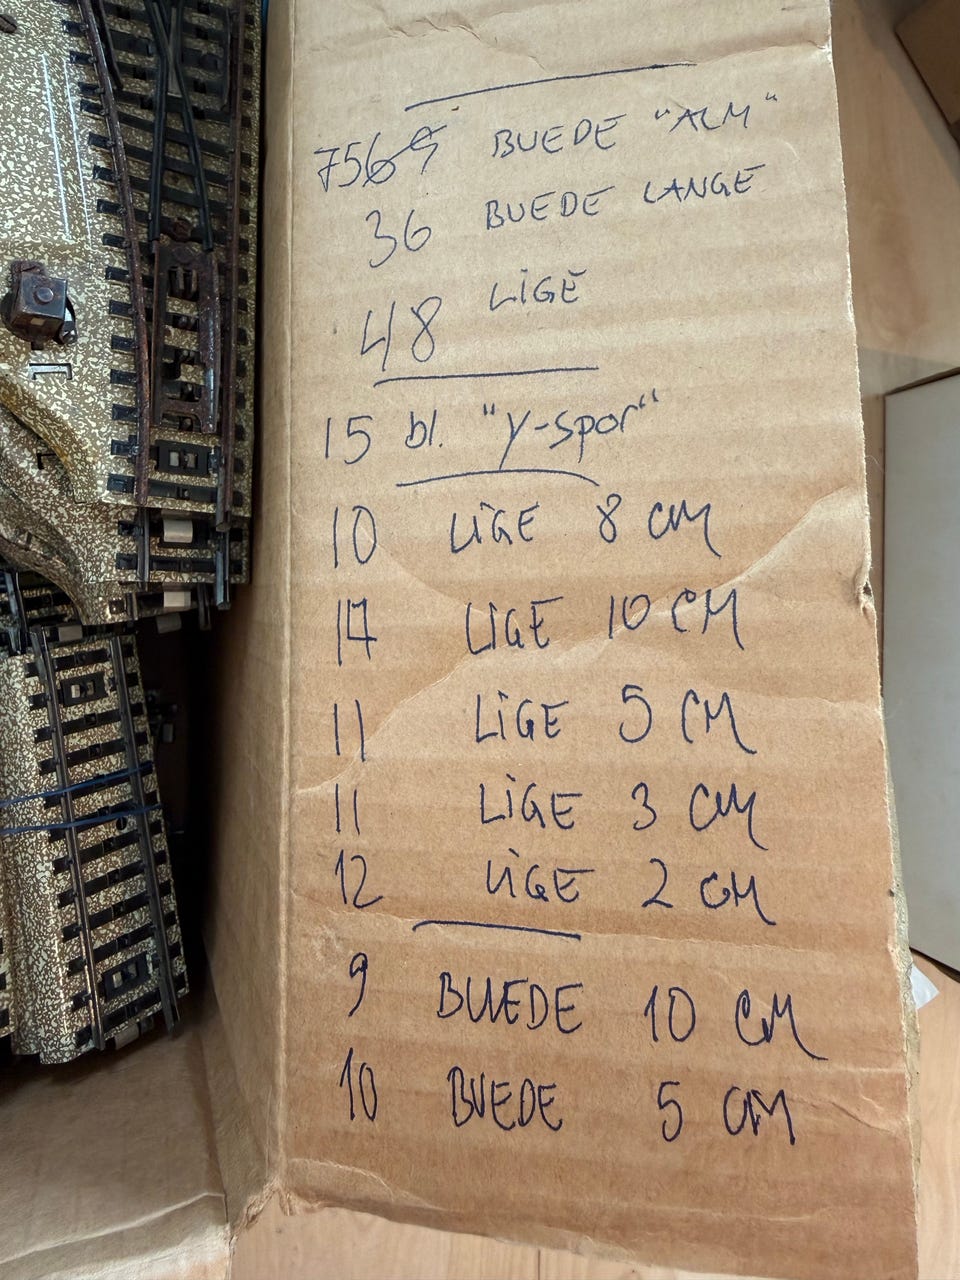 BUEDE "ALM"
36 BUEDE LANGE
48 LIGE
15 bl. "y-spor"
10 LIGE 8 CM
LIGE 10 CM
11 LIGE 5 CM
11 LIGE 3 CM
12 LIGE 2 CM
9 BUEDE 10 CM
10 BUEDE 5 CM